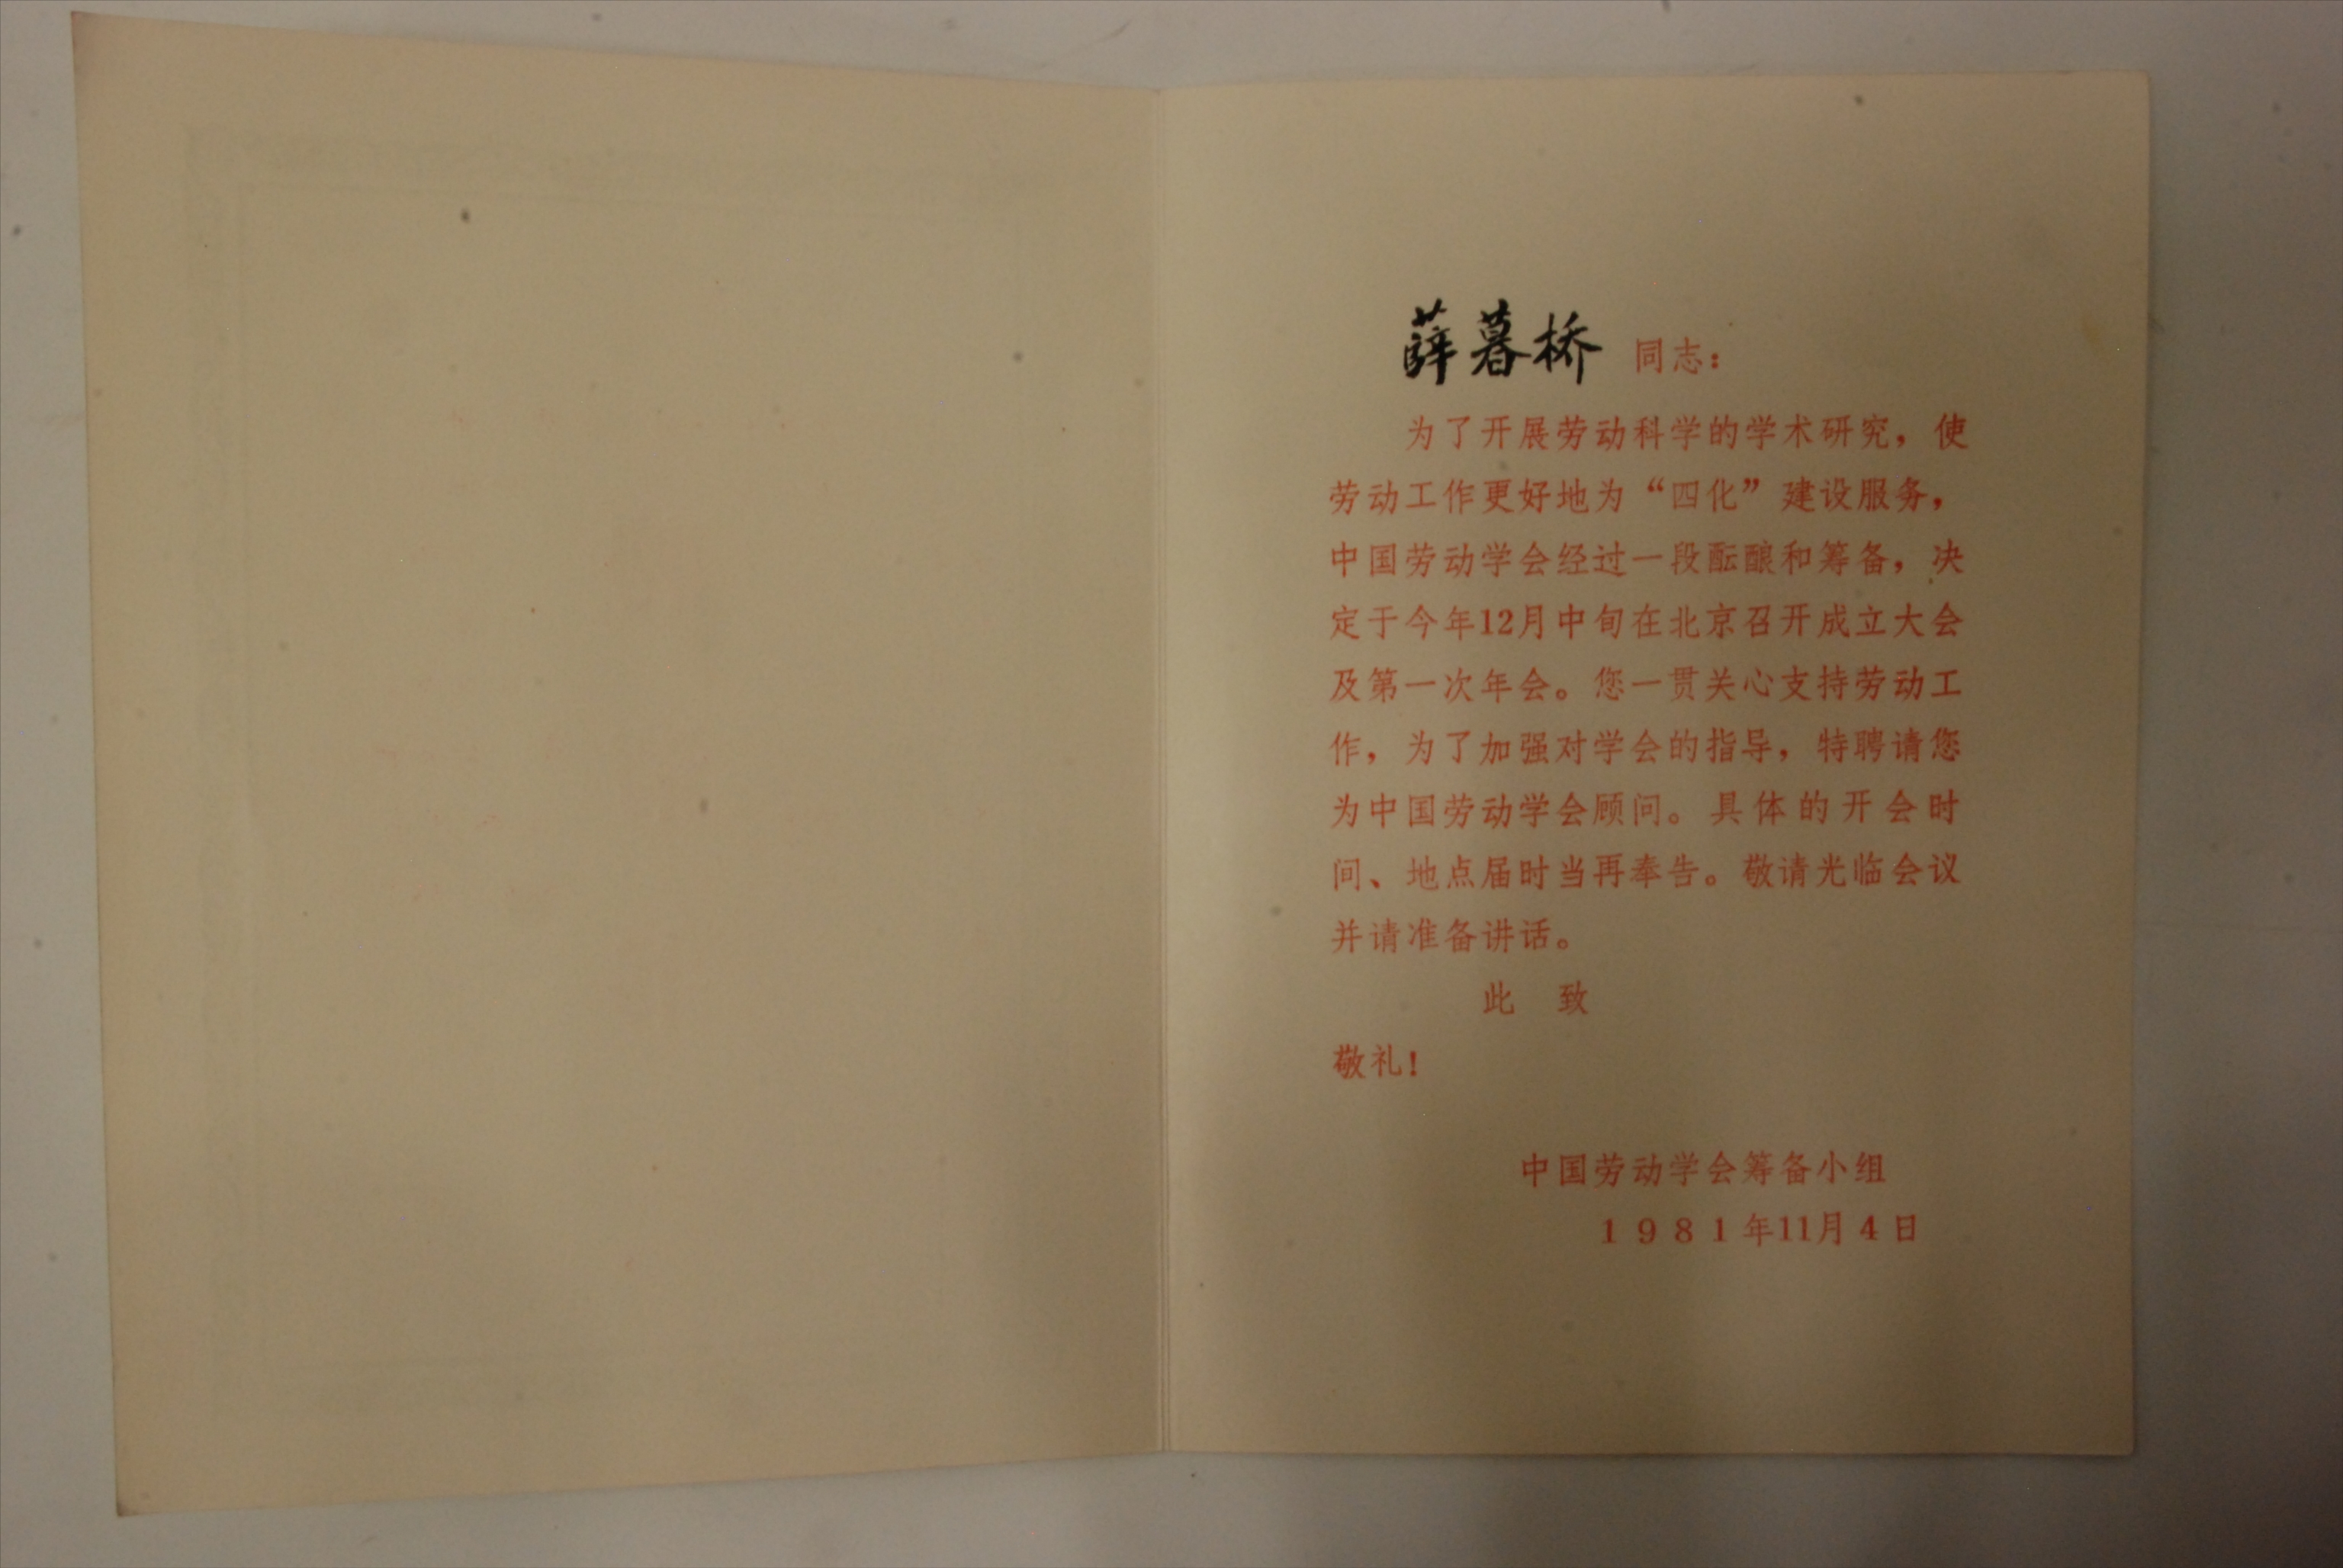 薛暮桥 同志：
为了开展劳动科学的学术研究，使
劳动工作更好地为“四化”建设服务，
中国劳动学会经过一段酝酿和筹备，决
定于今年12月中旬在北京召开成立大会
及第一次年会。您一贯关心支持劳动工
作，为了加强对学会的指导，特聘请您
为中国劳动学会顾问。具体的开会时
间、地点届时当再奉告。敬请光临会议
并请准备讲话。
此 致
敬礼！
中国劳动学会筹备小组
1981年11月4日